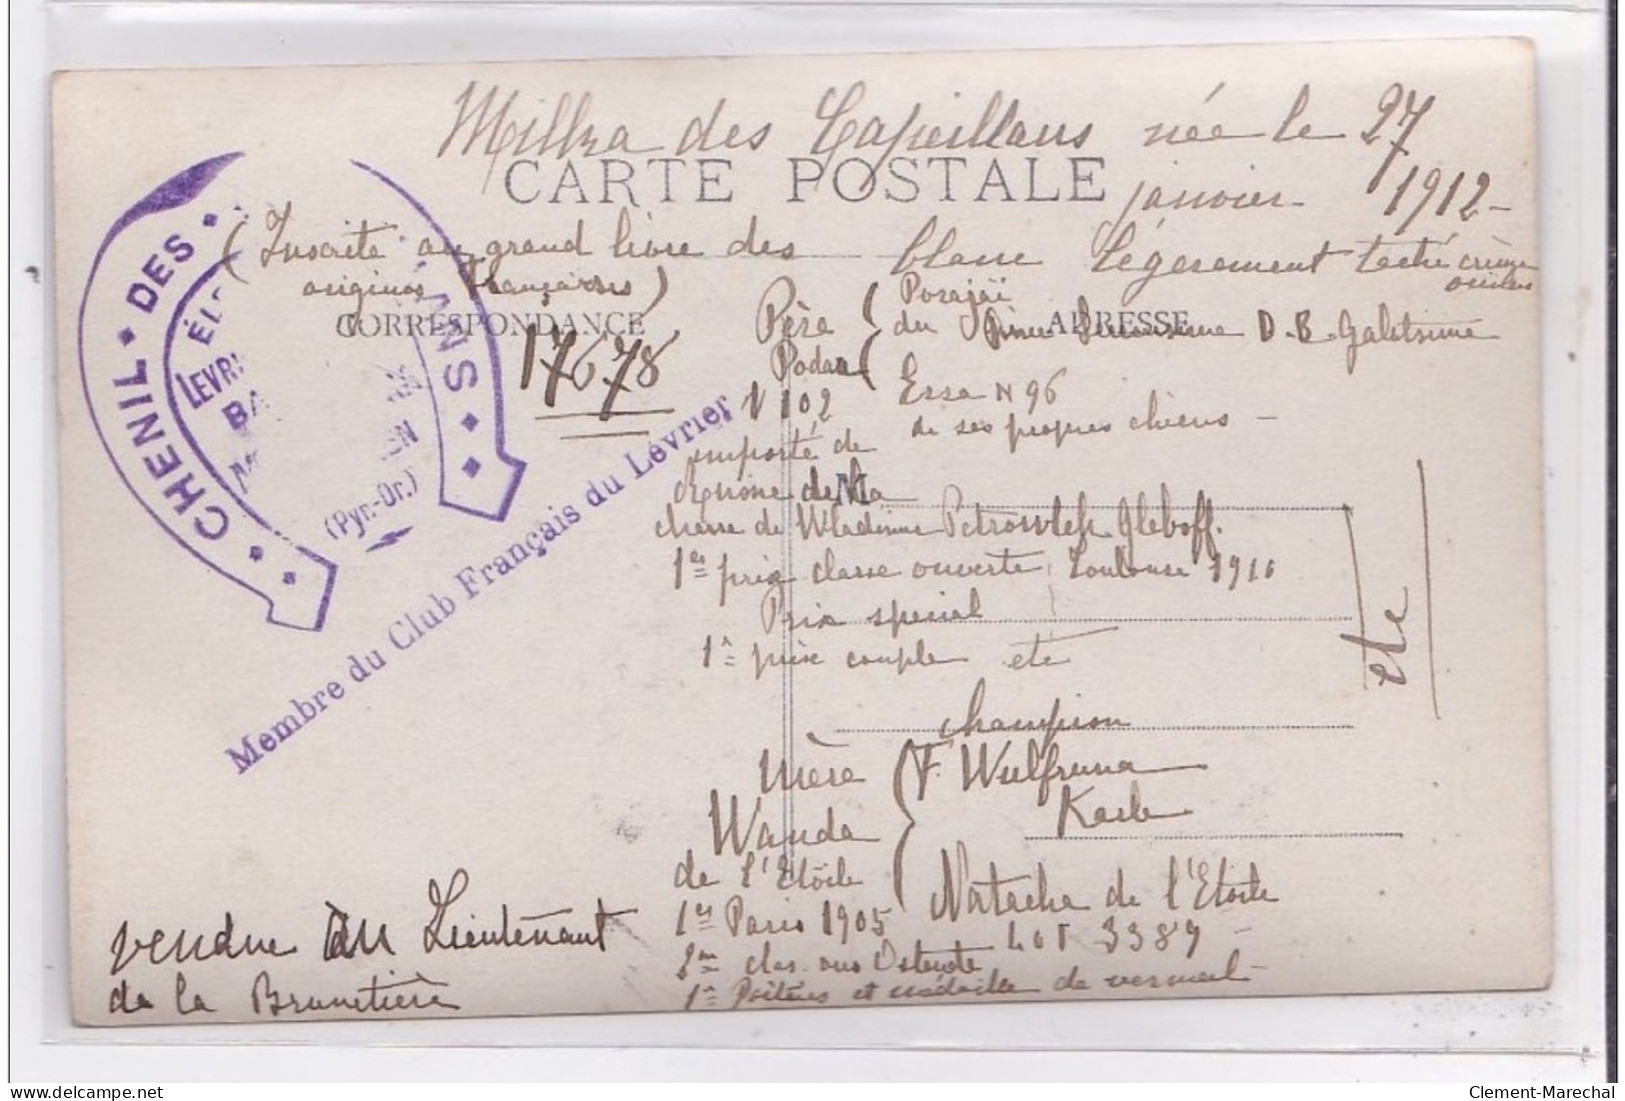 des Capeillans née le 27
CARTE POSTALE
janvier 1912 -
(Inscrite au grand livre des
origines Françaises)
blanc légèrement taché crème
CORRESPONDANCE
ADRESSE
17678
Père
du
D. B. Galitzine
N 102
N 96
de ses propres chiens -
importé de
de la
chasse de Wladimir Petrowitch Gleboff.
M
1er prix classe ouverte Toulouse 1910
Prix spécial
1er prix couple etc
etc
champion
Mère
F. Wulfruna
Wanda
de l'Etoile
Natacha de l'Etoile
LOT 3389 -
1er Paris 1905
Ostende
1er Poitiers et médaille de vermeil -
vendue au Lieutenant
de la Brunetière
CHENIL DES
NS
LEVR
BA
EN
(Pyr.-Or.)
Membre du Club Français du Lévrier
delcampe.net
Clement-Marechal